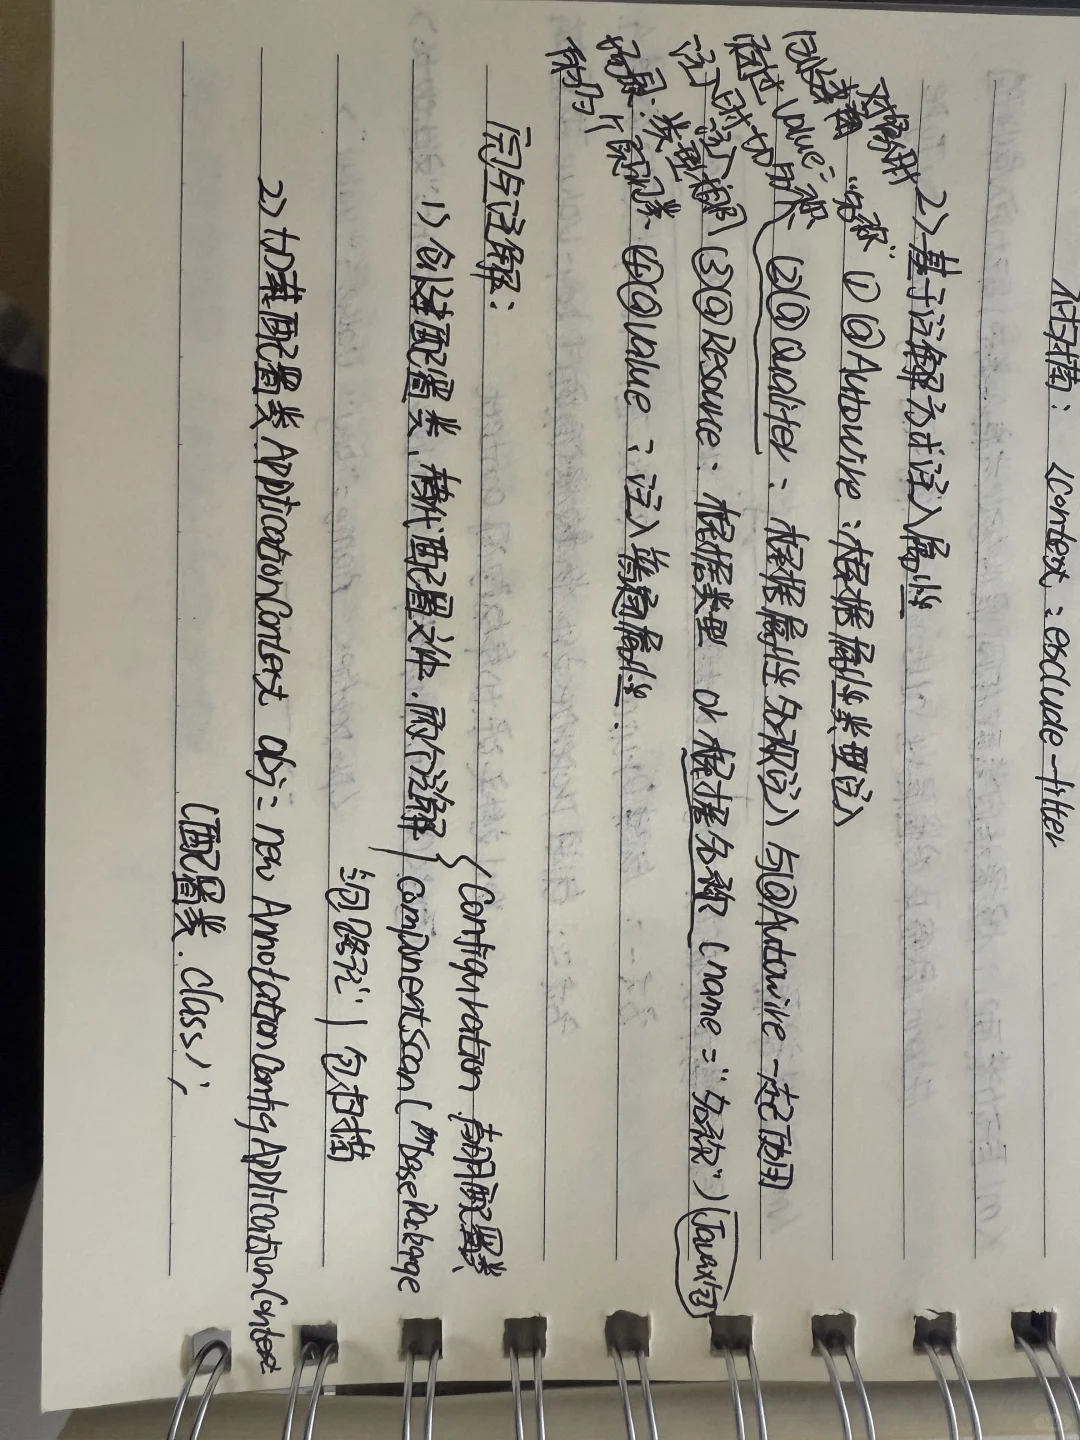 不扫描: <context:exclude-filter
2>基于注解方式注入属性
①@Autowire:根据属性类型注入
②@Qualifer:根据属性名称注入 与@Autowire一起使用
③@Resource:根据类型 or 根据名称(name="名称")(Javax包)
④@Value:注入普通属性.
对象时
创建
"名称"
通过value=
注入时切
注入
场景:类型相同
的多个
完全注解:
1)创建配置类、替代配置文件.两个注解
Configuration 声明配置类
Componentscan(basePackage
="包路径") 包扫描
2)加载配置类 ApplicationContext obj=new AnnotationConfigApplicationContext
(配置类.class);